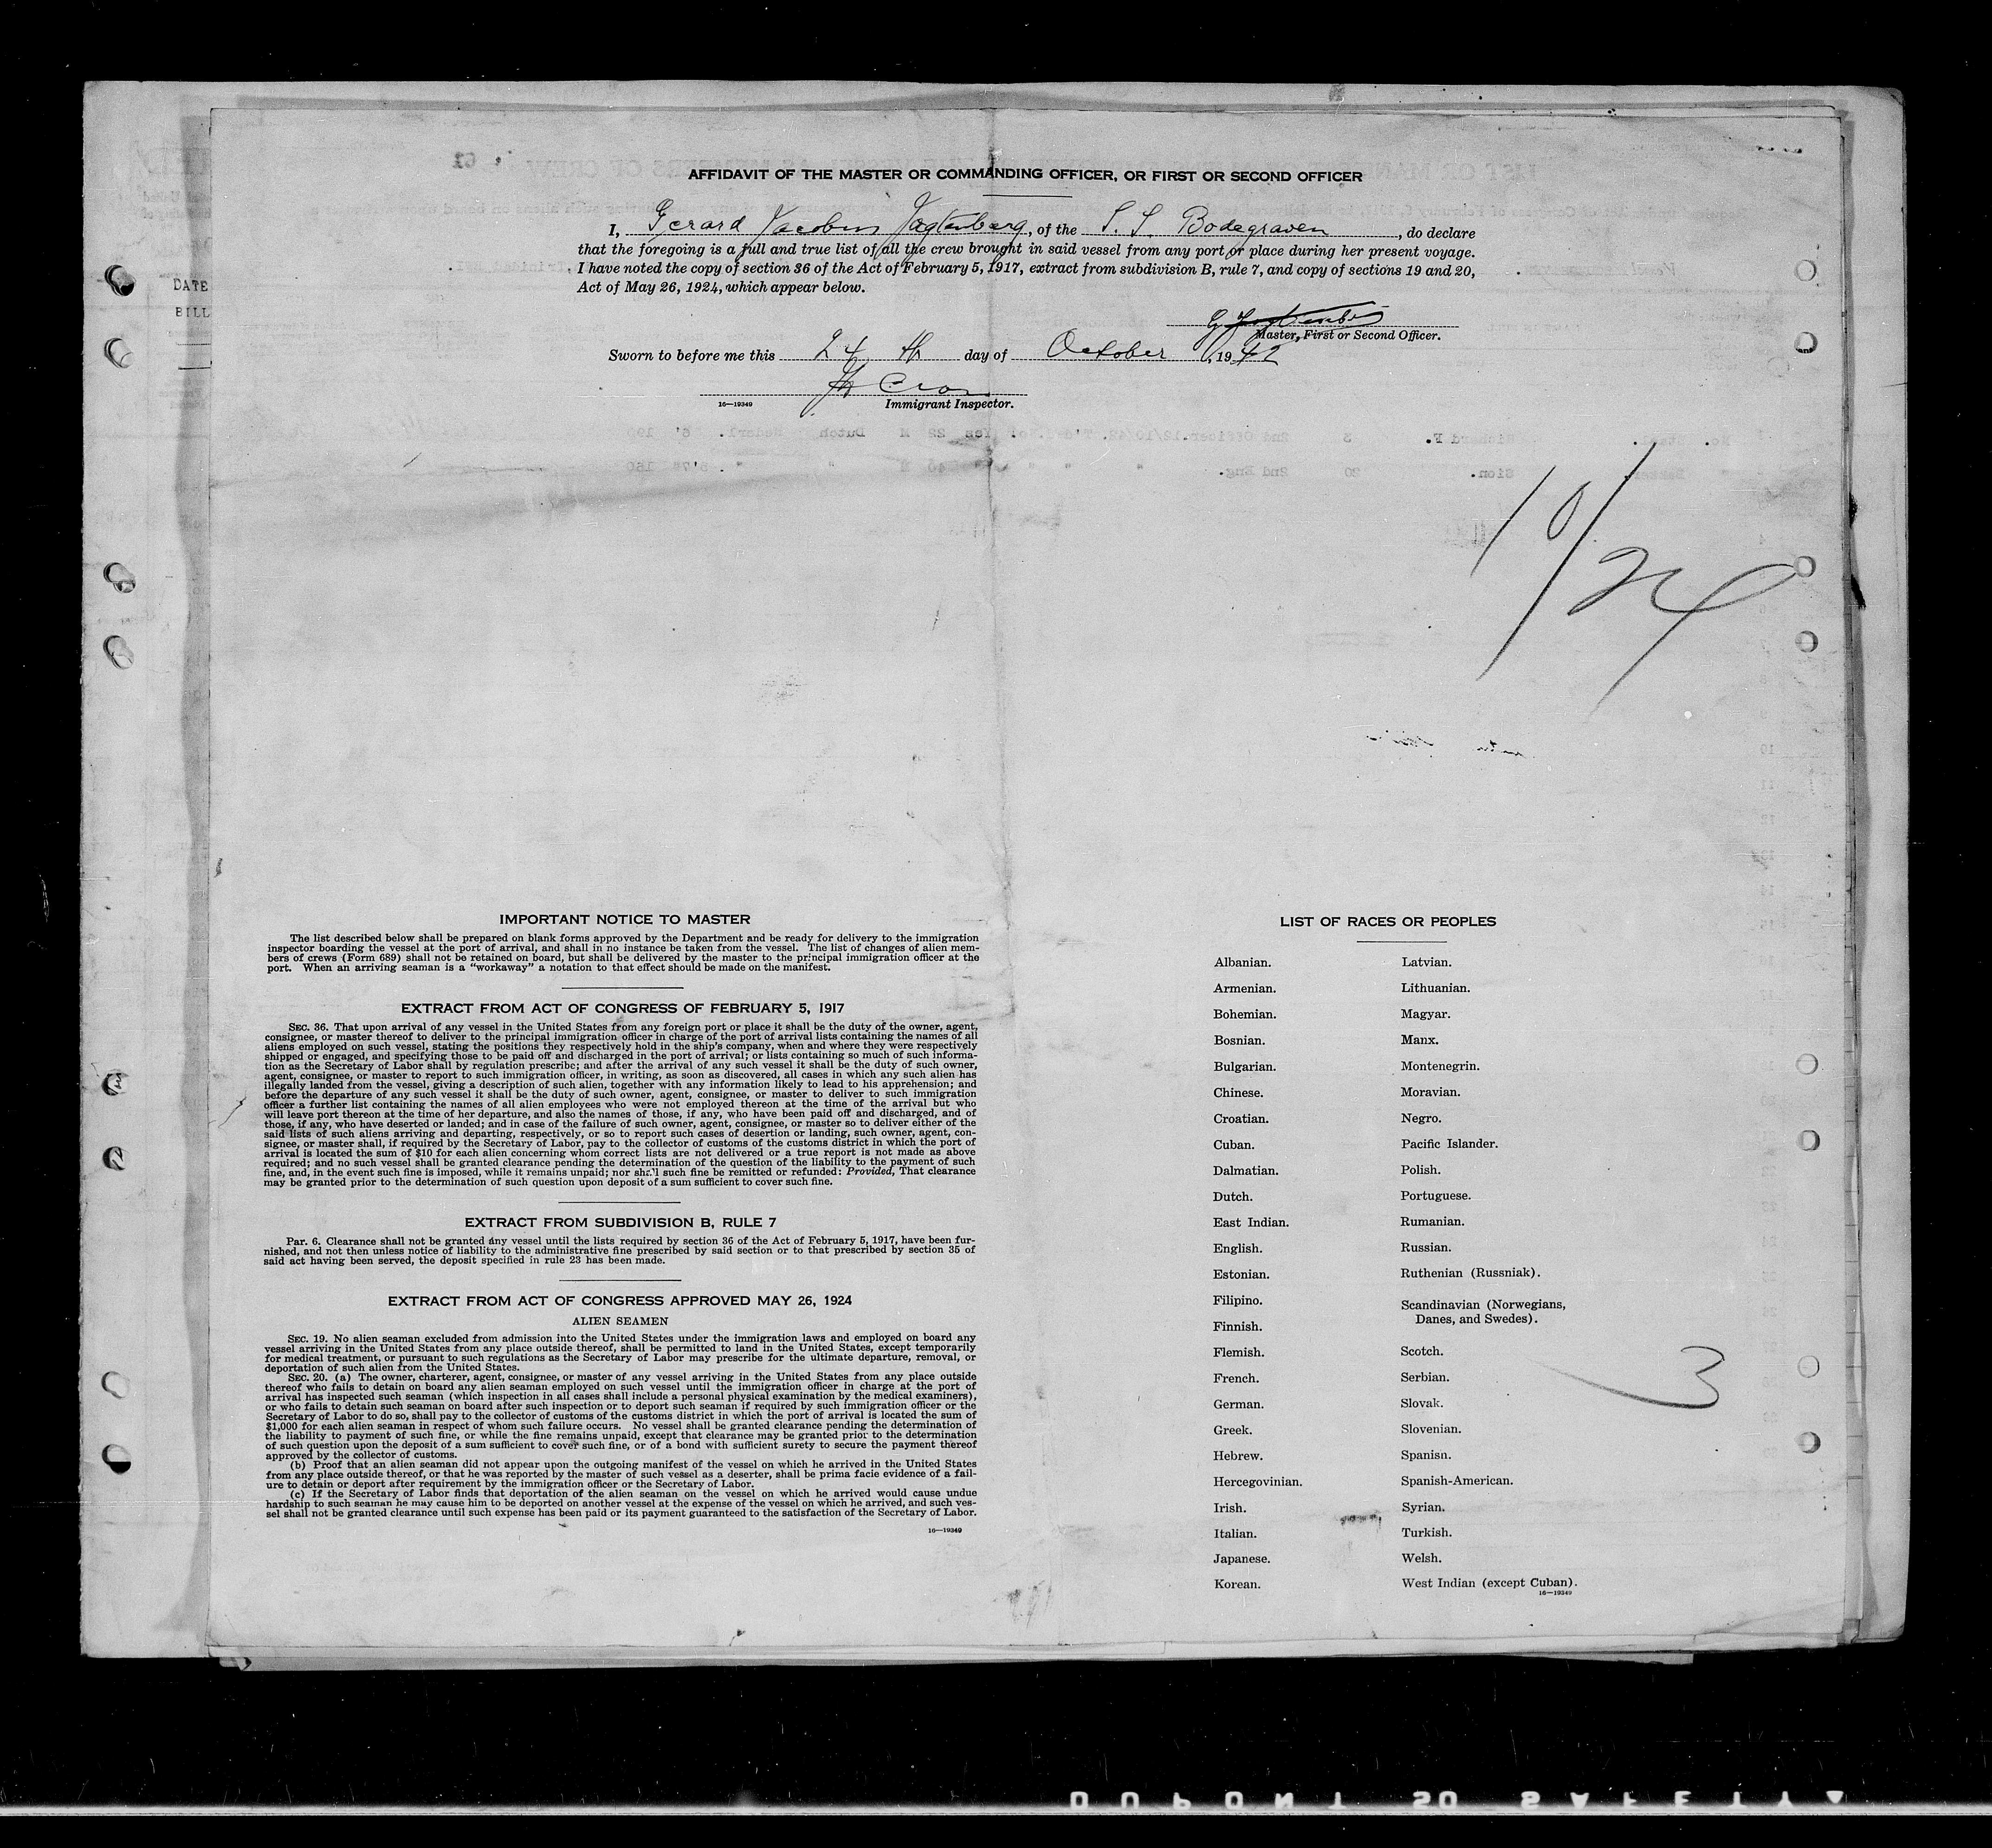 DATE
BILL
AFFIDAVIT OF THE MASTER OR COMMANDING OFFICER, OR FIRST OR SECOND OFFICER
I, Gerard Jacobus Vogtenberg, of the S. S. Bodegraven, do declare
that the foregoing is a full and true list of all the crew brought in said vessel from any port or place during her present voyage.
I have noted the copy of section 36 of the Act of February 5, 1917, extract from subdivision B, rule 7, and copy of sections 19 and 20,
Act of May 26, 1924, which appear below.
Master, First or Second Officer.
Sworn to before me this 24 th day of October, 1942
16—19349 Immigrant Inspector.
10/24
IMPORTANT NOTICE TO MASTER
The list described below shall be prepared on blank forms approved by the Department and be ready for delivery to the immigration
inspector boarding the vessel at the port of arrival, and shall in no instance be taken from the vessel. The list of changes of alien mem-
bers of crews (Form 689) shall not be retained on board, but shall be delivered by the master to the principal immigration officer at the
port. When an arriving seaman is a "workaway" a notation to that effect should be made on the manifest.
EXTRACT FROM ACT OF CONGRESS OF FEBRUARY 5, 1917
SEC. 36. That upon arrival of any vessel in the United States from any foreign port or place it shall be the duty of the owner, agent,
consignee, or master thereof to deliver to the principal immigration officer in charge of the port of arrival lists containing the names of all
aliens employed on such vessel, stating the positions they respectively hold in the ship's company, when and where they were respectively
shipped or engaged, and specifying those to be paid off and discharged in the port of arrival; or lists containing so much of such informa-
tion as the Secretary of Labor shall by regulation prescribe; and after the arrival of any such vessel it shall be the duty of such owner,
agent, consignee, or master to report to such immigration officer, in writing, as soon as discovered, all cases in which any such alien has
illegally landed from the vessel, giving a description of such alien, together with any information likely to lead to his apprehension; and
before the departure of any such vessel it shall be the duty of such owner, agent, consignee, or master to deliver to such immigration
officer a further list containing the names of all alien employees who were not employed thereon at the time of the arrival but who
will leave port thereon at the time of her departure, and also the names of those, if any, who have been paid off and discharged, and of
those, if any, who have deserted or landed; and in case of the failure of such owner, agent, consignee, or master so to deliver either of the
said lists of such aliens arriving and departing, respectively, or so to report such cases of desertion or landing, such owner, agent, con-
signee, or master shall, if required by the Secretary of Labor, pay to the collector of customs of the customs district in which the port of
arrival is located the sum of $10 for each alien concerning whom correct lists are not delivered or a true report is not made as above
required; and no such vessel shall be granted clearance pending the determination of the question of the liability to the payment of such
fine, and, in the event such fine is imposed, while it remains unpaid; nor shall such fine be remitted or refunded: Provided, That clearance
may be granted prior to the determination of such question upon deposit of a sum sufficient to cover such fine.
EXTRACT FROM SUBDIVISION B, RULE 7
Par. 6. Clearance shall not be granted any vessel until the lists required by section 36 of the Act of February 5, 1917, have been fur-
nished, and not then unless notice of liability to the administrative fine prescribed by said section or to that prescribed by section 35 of
said act having been served, the deposit specified in rule 23 has been made.
EXTRACT FROM ACT OF CONGRESS APPROVED MAY 26, 1924
ALIEN SEAMEN
SEC. 19. No alien seaman excluded from admission into the United States under the immigration laws and employed on board any
vessel arriving in the United States from any place outside thereof, shall be permitted to land in the United States, except temporarily
for medical treatment, or pursuant to such regulations as the Secretary of Labor may prescribe for the ultimate departure, removal, or
deportation of such alien from the United States.
SEC. 20. (a) The owner, charterer, agent, consignee, or master of any vessel arriving in the United States from any place outside
thereof who fails to detain on board any alien seaman employed on such vessel until the immigration officer in charge at the port of
arrival has inspected such seaman (which inspection in all cases shall include a personal physical examination by the medical examiners),
or who fails to detain such seaman on board after such inspection or to deport such seaman if required by such immigration officer or the
Secretary of Labor to do so, shall pay to the collector of customs of the customs district in which the port of arrival is located the sum of
$1,000 for each alien seaman in respect of whom such failure occurs. No vessel shall be granted clearance pending the determination of
the liability to payment of such fine, or while the fine remains unpaid, except that clearance may be granted prior to the determination
of such question upon the deposit of a sum sufficient to cover such fine, or of a bond with sufficient surety to secure the payment thereof
approved by the collector of customs.
(b) Proof that an alien seaman did not appear upon the outgoing manifest of the vessel on which he arrived in the United States
from any place outside thereof, or that he was reported by the master of such vessel as a deserter, shall be prima facie evidence of a fail-
ure to detain or deport after requirement by the immigration officer or the Secretary of Labor.
(c) If the Secretary of Labor finds that deportation of the alien seaman on the vessel on which he arrived would cause undue
hardship to such seaman he may cause him to be deported on another vessel at the expense of the vessel on which he arrived, and such ves-
sel shall not be granted clearance until such expense has been paid or its payment guaranteed to the satisfaction of the Secretary of Labor.
16—19349
LIST OF RACES OR PEOPLES
Albanian.
Armenian.
Bohemian.
Bosnian.
Bulgarian.
Chinese.
Croatian.
Cuban.
Dalmatian.
Dutch.
East Indian.
English.
Estonian.
Filipino.
Finnish.
Flemish.
French.
German.
Greek.
Hebrew.
Hercegovinian.
Irish.
Italian.
Japanese.
Korean.
Latvian.
Lithuanian.
Magyar.
Manx.
Montenegrin.
Moravian.
Negro.
Pacific Islander.
Polish.
Portuguese.
Rumanian.
Russian.
Ruthenian (Russniak).
Scandinavian (Norwegians,
Danes, and Swedes).
Scotch.
Serbian.
Slovak.
Slovenian.
Spanisn.
Spanish-American.
Syrian.
Turkish.
Welsh.
West Indian (except Cuban).
16—19349
3
DUPONT SO SAFETY